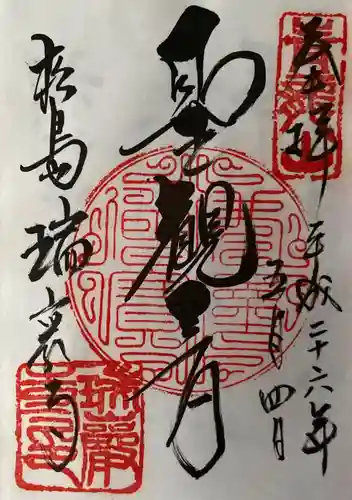 奉拝
平成二十六年
五月四日
聖觀音
松島瑞巖寺